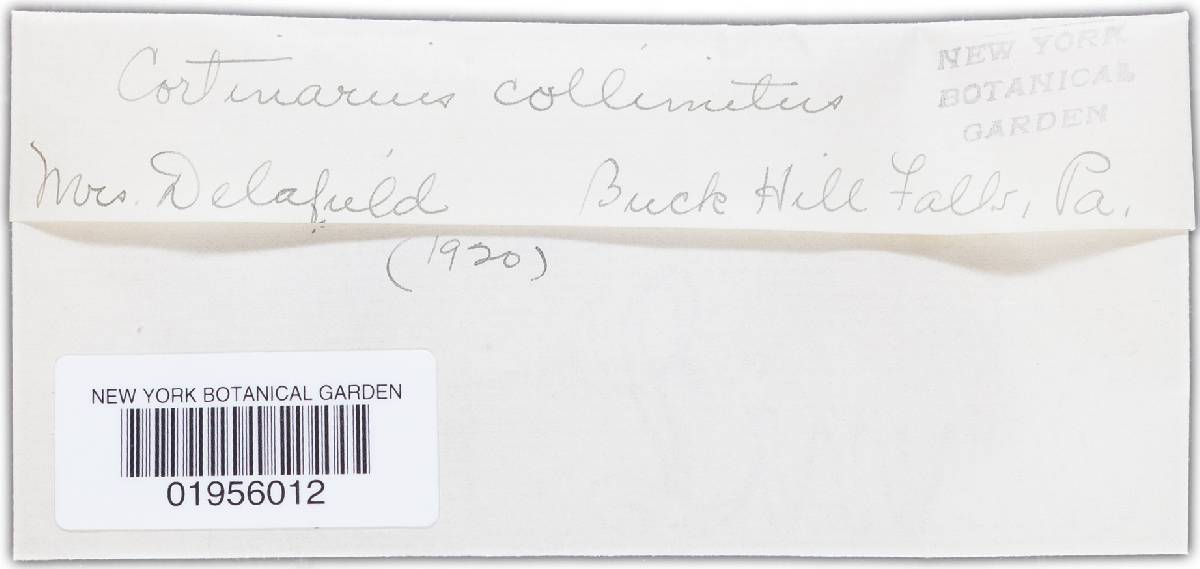 Cortinarius collinitus
NEW YORK
BOTANICAL
GARDEN
Mrs. Delafield Buck Hill Falls, Pa.
(1920)
NEW YORK BOTANICAL GARDEN
01956012